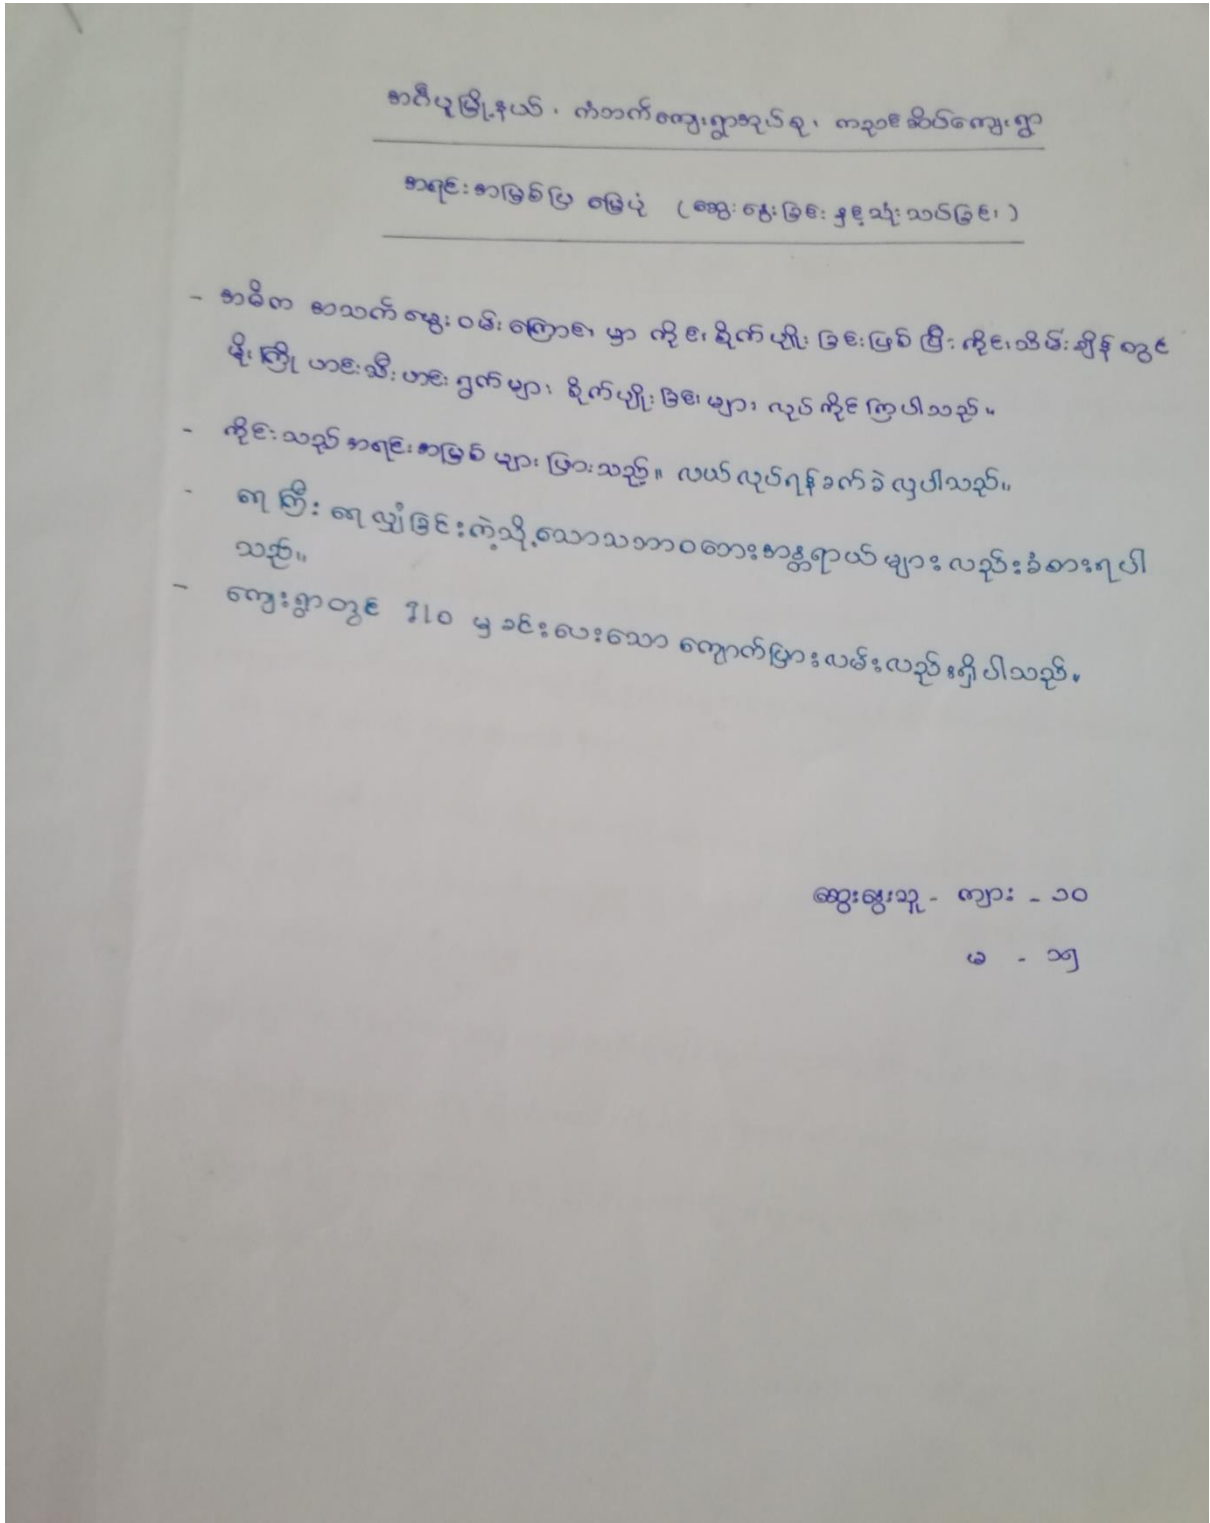 အင်္ဂပူမြို့နယ်၊ ကံဘက်ကျေးရွာအုပ်စု၊ ကညင်ဆိပ်ကျေးရွာ
အရင်းအမြစ်ပြ မြေပုံ (ဆွေးနွေးခြင်းနှင့်သုံးသပ်ခြင်း)
- အဓိက အသက်မွေးဝမ်းကြောင်းမှာ ကိုင်းစိုက်ပျိုးခြင်းဖြစ်ပြီး ကိုင်းသိမ်းချိန်တွင်
မိုးကြို ဟင်းသီးဟင်းရွက်များ စိုက်ပျိုးခြင်းများ လုပ်ကိုင်ကြပါသည်။
- ကိုင်းသည်အရင်းအမြစ်များပြားသည့်။ လယ်လုပ်ရန်ခက်ခဲလှပါသည်။
- ရေကြီးရေလျှံခြင်းကဲ့သို့သောသဘာဝဘေးအန္တရာယ်များလည်းခံစားရပါ
သည်။
- ကျေးရွာတွင် ILO မှခင်းပေးသော ကျောက်ပြားလမ်းလည်းရှိပါသည်။
ဆွေးနွေးသူ - ကျား - ၁၀
မ - ၁၅